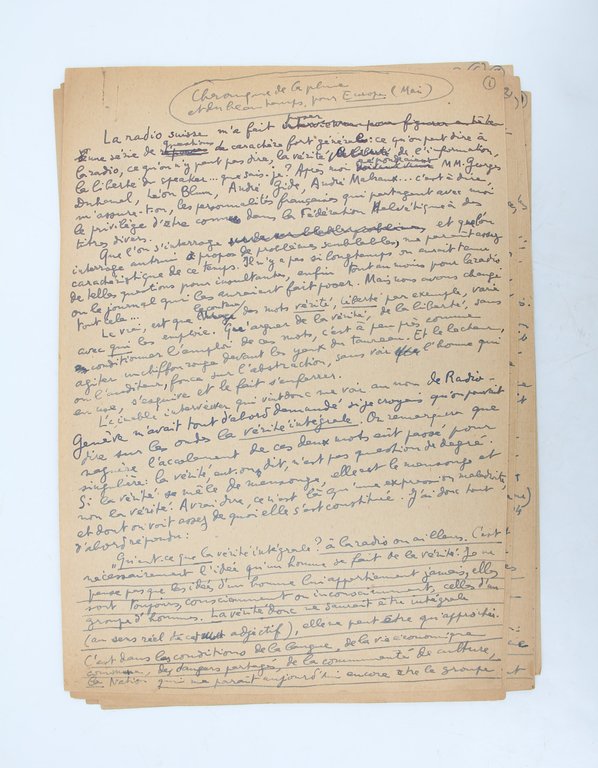 Chronique de la pluie
et du beau temps, pour Europe (Mai)
1
poser
La radio suisse m'a fait interviewer pour figurer en tête
d'une série de questions de caractère fort général : ce qu'on peut dire à
la radio, ce qu'on n'y peut pas dire, la vérité, la liberté de l'information,
la liberté du speaker... que sais-je ? Après moi répondraient MM. Georges
Duhamel, Léon Blum, André Gide, André Malraux... c'est-à-dire,
m'assure-t-on, les personnalités françaises qui partagent avec moi
le privilège d'être connues dans la Fédération Helvétique à des
titres divers.
Que l'on s'interroge et qu'on
interroge autrui à propos de problèmes semblables, me paraît assez
caractéristique de ce temps. Il n'y a pas si longtemps on aurait tenu
de telles questions pour insultantes, enfin tout au moins pour la radio
ou le journal qui les auraient fait poser. Mais nous avons changé
tout cela...
Le vrai, est que le contenu des mots vérité, liberté par exemple, varie
avec qui les emploie. Qu'arguer de la vérité, de la liberté, sans
conditionner l'emploi de ces mots, c'est à peu près comme
agiter un chiffon rouge devant les yeux du taureau. Et le lecteur,
ou l'auditeur, fonce sur l'abstraction, sans voir l'homme qui
en use, s'esquive et le fait s'enferrer.
L'aimable intervieweur qui vint donc me voir au nom de Radio-
Genève m'avait tout d'abord demandé si je croyais qu'on pouvait
dire sur les ondes la vérité intégrale. On remarquera que
naguère l'accolement de ces deux mots eût passé pour
singulière : la vérité, eut-on dit, n'est pas question de degré.
Si la vérité se mêle de mensonge, elle est le mensonge et
non la vérité. A vrai dire, ce n'est là qu'une expression maladroite,
et dont on voit assez de quoi elle s'est constituée. J'ai donc tout
d'abord répondu :
"Qu'est-ce que la vérité intégrale ? à la radio ou ailleurs. C'est
nécessairement l'idée qu'un homme se fait de la vérité. Je ne
pense pas que les idées d'un homme lui appartiennent jamais, elles
sont toujours, consciemment ou inconsciemment, celles d'un
groupe d'hommes. La vérité donc ne saurait être intégrale
(au sens réel de cet adjectif), elle ne peut être qu'approchée.
C'est dans les conditions de la langue, de la vie économique
commune, des dangers partagés, de la communauté de culture,
la Nation qui me paraît aujourd'hui encore être le groupe